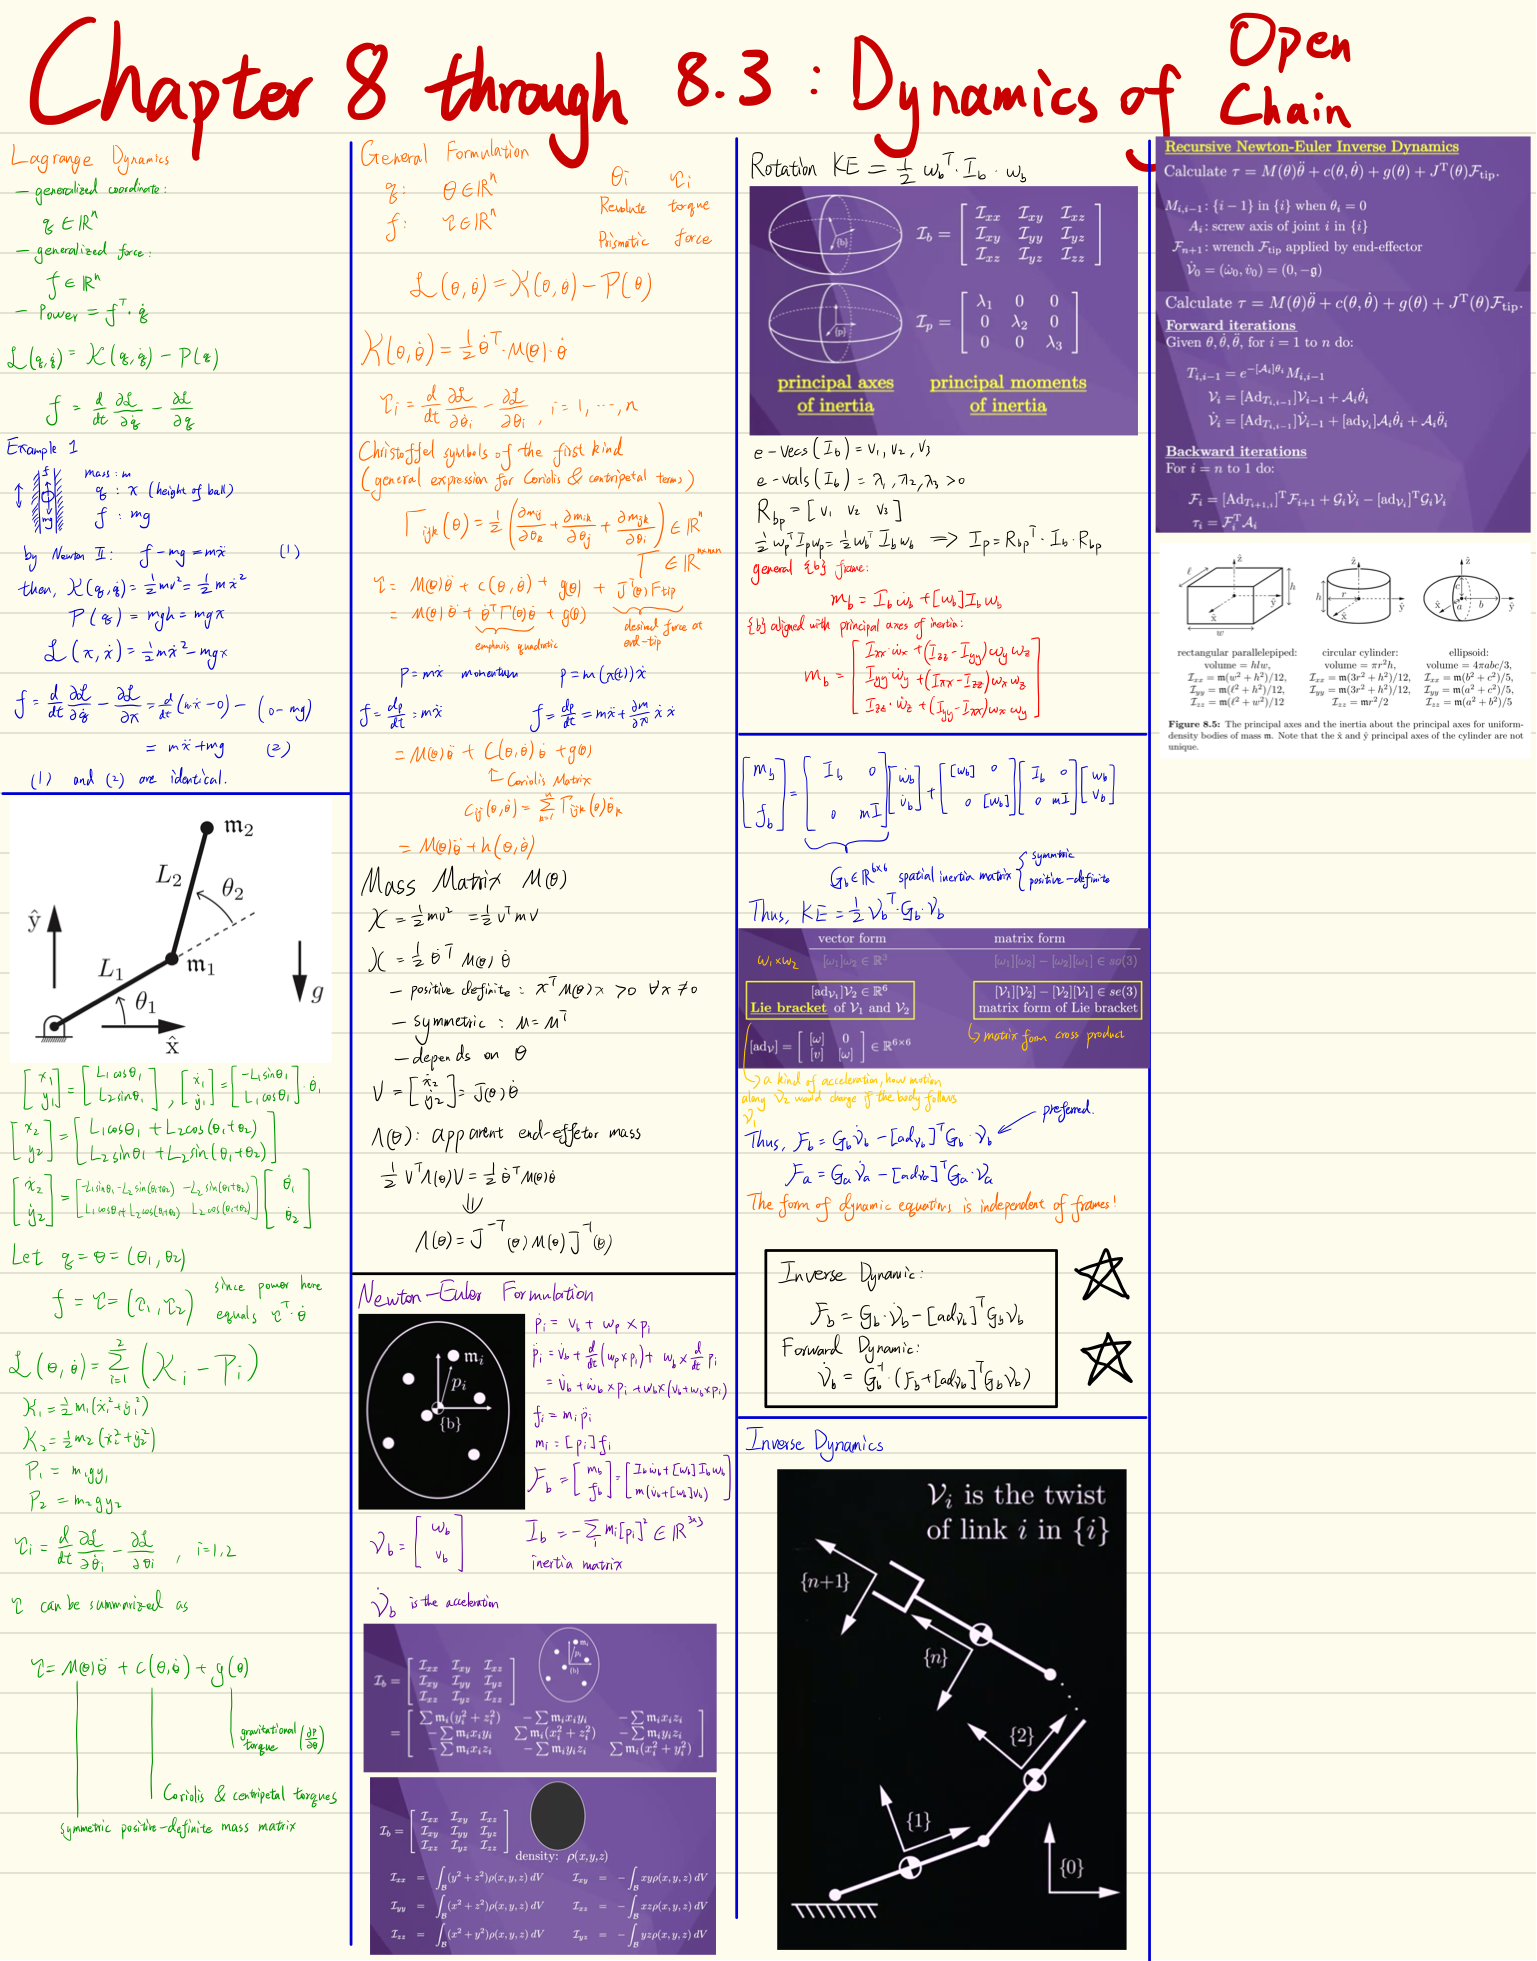 Chapter 8 through 8.3 : Dynamics of Open Chain
Lagrange Dynamics
– generalized coordinate:
q ∈ ℝⁿ
– generalized force:
f ∈ ℝⁿ
– Power = fᵀ · q̇
ℒ(q, q̇) = K(q, q̇) – P(q)
f = d/dt ∂ℒ/∂q̇ – ∂ℒ/∂q
Example 1
f
mg
mass : m
q : x (height of ball)
f : mg
by Newton II: f – mg = mẍ (1)
then, K(q, q̇) = ½mv² = ½mẋ²
P(q) = mgh = mgx
ℒ(x, ẋ) = ½mẋ² – mgx
f = d/dt ∂ℒ/∂q̇ – ∂ℒ/∂x = d/dt(mẋ – 0) – (0 – mg)
= mẍ + mg (2)
(1) and (2) are identical.
m₂
L₂
θ₂
ŷ
m₁
L₁
θ₁
g
x̂
[x₁ y₁] = [L₁cosθ₁ L₂sinθ₁], [ẋ₁ ẏ₁] = [-L₁sinθ₁ L₁cosθ₁] · θ̇₁
[x₂ y₂] = [L₁cosθ₁ + L₂cos(θ₁+θ₂) L₂sinθ₁ + L₂sin(θ₁+θ₂)]
[ẋ₂ ẏ₂] = [-L₁sinθ₁-L₂sin(θ₁+θ₂) -L₂sin(θ₁+θ₂) L₁cosθ₁+L₂cos(θ₁+θ₂) L₂cos(θ₁+θ₂)] [θ̇₁ θ̇₂]
Let q = θ = (θ₁, θ₂)
f = τ = (τ₁, τ₂) since power here equals τᵀ · θ̇
ℒ(θ, θ̇) = Σ²ᵢ₌₁ (Kᵢ – Pᵢ)
K₁ = ½m₁(ẋ₁² + ẏ₁²)
K₂ = ½m₂(ẋ₂² + ẏ₂²)
P₁ = m₁gy₁
P₂ = m₂gy₂
τᵢ = d/dt ∂ℒ/∂θ̇ᵢ – ∂ℒ/∂θᵢ , i=1,2
τ can be summarized as
τ = M(θ)θ̈ + c(θ,θ̇) + g(θ)
gravitational torque (∂P/∂θ)
Coriolis & centripetal torques
symmetric positive-definite mass matrix
General Formulation
q: θ ∈ ℝⁿ
f: τ ∈ ℝⁿ
θᵢ τᵢ
Revolute torque
Prismatic force
ℒ(θ, θ̇) = K(θ, θ̇) – P(θ)
K(θ, θ̇) = ½ θ̇ᵀ · M(θ) · θ̇
τᵢ = d/dt ∂ℒ/∂θ̇ᵢ – ∂ℒ/∂θᵢ , i = 1, ⋯, n
Christoffel symbols of the first kind
(general expression for Coriolis & centripetal terms)
Γᵢⱼₖ(θ) = ½ (∂mᵢⱼ/∂θₖ + ∂mᵢₖ/∂θⱼ + ∂mⱼₖ/∂θᵢ) ∈ ℝⁿ
Γ ∈ ℝⁿˣⁿˣⁿ
τ = M(θ)θ̈ + c(θ, θ̇) + g(θ) + Jᵀ(θ)Ftip
= M(θ)θ̈ + θ̇ᵀΓ(θ)θ̇ + g(θ)
emphasis quadratic
desired force at end-tip
p = mẋ momentum p = m(x(t))ẋ
f = dp/dt = mẍ f = dp/dt = mẍ + ∂m/∂x ẋ ẋ
= M(θ)θ̈ + C(θ,θ̇)θ̇ + g(θ)
Coriolis Matrix
cᵢⱼ(θ,θ̇) = Σⁿₖ₌₁ Γᵢⱼₖ(θ)θ̇ₖ
= M(θ)θ̈ + h(θ, θ̇)
Mass Matrix M(θ)
K = ½mv² = ½vᵀmv
K = ½ θ̇ᵀ M(θ) θ̇
– positive definite : xᵀM(θ)x > 0 ∀x ≠ 0
– symmetric : M = Mᵀ
– depends on θ
V = [ẋ₂ ẏ₂] = J(θ)θ̇
Λ(θ): apparent end-effetor mass
½ VᵀΛ(θ)V = ½ θ̇ᵀM(θ)θ̇
⇓
Λ(θ) = J⁻ᵀ(θ) M(θ) J⁻¹(θ)
Newton-Euler Formulation
mᵢ
pᵢ
{b}
ṗᵢ = v_b + ω_p × pᵢ
p̈ᵢ = v̇_b + d/dt(ω_p × pᵢ) + ω_b × d/dt pᵢ
= v̇_b + ω̇_b × pᵢ + ω_b × (v_b + ω_b × pᵢ)
fᵢ = mᵢp̈ᵢ
mᵢ = [pᵢ]fᵢ
F_b = [m_b f_b] = [I_bω̇_b + [ω_b]I_bω_b m(v̇_b + [ω_b]v_b)]
V_b = [ω_b v_b] I_b = –Σᵢ mᵢ[pᵢ]² ∈ ℝ³ˣ³
inertia matrix
V̇_b is the acceleration
I_b = [Ixx Ixy Ixz Ixy Iyy Iyz Ixz Iyz Izz]
= [∑mᵢ(yᵢ²+zᵢ²) −∑mᵢxᵢyᵢ −∑mᵢxᵢzᵢ
−∑mᵢxᵢyᵢ ∑mᵢ(xᵢ²+zᵢ²) −∑mᵢyᵢzᵢ
−∑mᵢxᵢzᵢ −∑mᵢyᵢzᵢ ∑mᵢ(xᵢ²+yᵢ²)]
I_b = [Ixx Ixy Ixz Ixy Iyy Iyz Ixz Iyz Izz]
density: ρ(x,y,z)
Ixx = ∫_B (y²+z²)ρ(x,y,z) dV Ixy = −∫_B xyρ(x,y,z) dV
Iyy = ∫_B (x²+z²)ρ(x,y,z) dV Ixz = −∫_B xzρ(x,y,z) dV
Izz = ∫_B (x²+y²)ρ(x,y,z) dV Iyz = −∫_B yzρ(x,y,z) dV
Rotation KE = ½ ω_bᵀ · I_b · ω_b
{b}
I_b = [Ixx Ixy Ixz Ixy Iyy Iyz Ixz Iyz Izz]
{p}
I_p = [λ₁ 0 0 0 λ₂ 0 0 0 λ₃]
principal axes of inertia
principal moments of inertia
e-vecs(I_b) = v₁, v₂, v₃
e-vals(I_b) = λ₁, λ₂, λ₃ > 0
R_bp = [v₁ v₂ v₃]
½ω_pᵀI_pω_p = ½ω_bᵀI_bω_b ⟹ I_p = R_bpᵀ · I_b · R_bp
general {b} frame:
m_b = I_bω̇_b + [ω_b]I_bω_b
{b} aligned with principal axes of inertia:
m_b = [Ixx·ω̇x + (Izz – Iyy)ωyωz
Iyy·ω̇y + (Ixx – Izz)ωxωz
Izz·ω̇z + (Iyy – Ixx)ωxωy]
[m_b f_b] = [I_b 0 0 mI][ω̇_b v̇_b] + [[ω_b] 0 0 [ω_b]][I_b 0 0 mI][ω_b v_b]
G_b ∈ ℝ⁶ˣ⁶ spatial inertia matrix { symmetric positive-definite
Thus, KE = ½ V_bᵀ · G_b · V_b
vector form matrix form
ω₁×ω₂ [ω₁]ω₂ ∈ ℝ³ [ω₁][ω₂] − [ω₂][ω₁] ∈ so(3)
[ad_V₁]V₂ ∈ ℝ⁶ [V₁][V₂] − [V₂][V₁] ∈ se(3)
Lie bracket of V₁ and V₂ matrix form of Lie bracket
matrix form cross product
[ad_V] = [[ω] 0 [v] [ω]] ∈ ℝ⁶ˣ⁶
a kind of acceleration, how motion
along V₂ would change if the body follows
V₁
preferred.
Thus, F_b = G_bV̇_b – [ad_V_b]ᵀG_b · V_b
F_a = G_aV̇_a – [ad_V_a]ᵀG_a · V_a
The form of dynamic equations is independent of frames!
Inverse Dynamic:
F_b = G_b · V̇_b – [ad_V_b]ᵀG_bV_b
Forward Dynamic:
V̇_b = G_b⁻¹ · (F_b + [ad_V_b]ᵀG_bV_b)
Inverse Dynamics
Vᵢ is the twist
of link i in {i}
{n+1}
{n}
{2}
{1}
{0}
Recursive Newton-Euler Inverse Dynamics
Calculate τ = M(θ)θ̈ + c(θ, θ̇) + g(θ) + Jᵀ(θ)F_tip.
M_i,i−1 : {i − 1} in {i} when θᵢ = 0
Aᵢ : screw axis of joint i in {i}
F_n+1 : wrench F_tip applied by end-effector
V̇₀ = (ω̇₀, v̇₀) = (0, −g)
Calculate τ = M(θ)θ̈ + c(θ, θ̇) + g(θ) + Jᵀ(θ)F_tip.
Forward iterations
Given θ, θ̇, θ̈, for i = 1 to n do:
T_i,i−1 = e^−[Aᵢ]θᵢ M_i,i−1
Vᵢ = [Ad_T_i,i−1]V_i−1 + Aᵢθ̇ᵢ
V̇ᵢ = [Ad_T_i,i−1]V̇_i−1 + [ad_Vᵢ]Aᵢθ̇ᵢ + Aᵢθ̈ᵢ
Backward iterations
For i = n to 1 do:
Fᵢ = [Ad_T_i+1,i]ᵀF_i+1 + GᵢV̇ᵢ − [ad_Vᵢ]ᵀGᵢVᵢ
τᵢ = FᵢᵀAᵢ
ℓ ẑ h ŷ x̂ w
ẑ r h ŷ x̂
ẑ c a b ŷ x̂
rectangular parallelepiped:
volume = hlw,
Ixx = m(w² + h²)/12,
Iyy = m(ℓ² + h²)/12,
Izz = m(ℓ² + w²)/12
circular cylinder:
volume = πr²h,
Ixx = m(3r² + h²)/12,
Iyy = m(3r² + h²)/12,
Izz = mr²/2
ellipsoid:
volume = 4πabc/3,
Ixx = m(b² + c²)/5,
Iyy = m(a² + c²)/5,
Izz = m(a² + b²)/5
Figure 8.5: The principal axes and the inertia about the principal axes for uniform-
density bodies of mass m. Note that the x̂ and ŷ principal axes of the cylinder are not
unique.